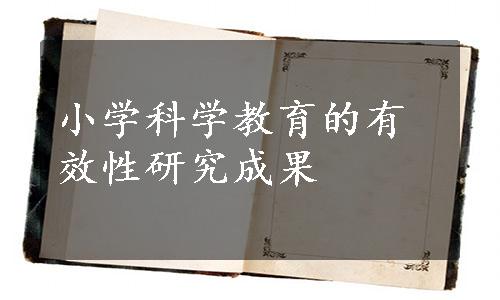 小学科学教育的有
效性研究成果